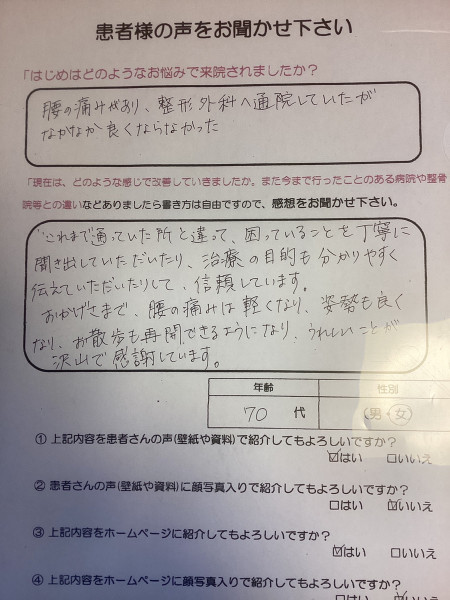 患者様の声をお聞かせ下さい
「はじめはどのようなお悩みで来院されましたか？
腰の痛みがあり、整形外科へ通院していたが
なかなか良くならなかった
「現在は、どのような感じで改善していきましたか。また今まで行ったことのある病院や整骨
院等との違いなどありましたら書き方は自由ですので、感想をお聞かせ下さい。
これまで通っていた所と違って、困っていることを丁寧に
聞き出していただいたり、治療の目的も分かりやすく
伝えていただいたりして、信頼しています。
おかげさまで、腰の痛みは軽くなり、姿勢も良く
なり、お散歩も再開できるようになり、うれしいことが
沢山で感謝しています。
年齢 性別
70 代 男・女
① 上記内容を患者さんの声(壁紙や資料)で紹介してもよろしいですか？
☑はい □いいえ
② 患者さんの声(壁紙や資料)に顔写真入りで紹介してもよろしいですか？
□はい ☑いいえ
③ 上記内容をホームページに紹介してもよろしいですか？
☑はい □いいえ
④ 上記内容をホームページに顔写真入りで紹介してもよろしいですか？
□はい ☑いいえ